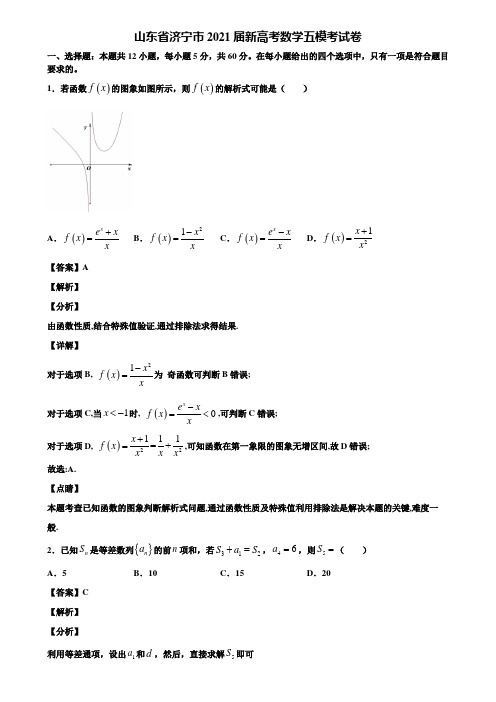 山东省济宁市 2021 届新高考数学五模考试卷
一、选择题：本题共 12 小题，每小题 5 分，共 60 分。在每小题给出的四个选项中，只有一项是符合题目
要求的。
1．若函数 f(x) 的图象如图所示，则 f(x) 的解析式可能是（ ）
y
O
x
A．f(x)=(e^x+x)/x B．f(x)=(1-x²)/x C．f(x)=(e^x-x)/x D．f(x)=(x+1)/x²
【答案】A
【解析】
【分析】
由函数性质,结合特殊值验证,通过排除法求得结果.
【详解】
对于选项 B, f(x)=(1-x²)/x 为 奇函数可判断 B 错误;
对于选项 C,当 x<-1 时, f(x)=(e^x-x)/x<0,可判断 C 错误;
对于选项 D, f(x)=(x+1)/x²=1/x+1/x²,可知函数在第一象限的图象无增区间,故 D 错误;
故选:A.
【点睛】
本题考查已知函数的图象判断解析式问题,通过函数性质及特殊值利用排除法是解决本题的关键,难度一
般.
2．已知 Sₙ 是等差数列{aₙ}的前 n 项和，若 S₃+a₁=S₂，a₄=6，则 S₅=（ ）
A．5 B．10 C．15 D．20
【答案】C
【解析】
【分析】
利用等差通项，设出 a₁ 和 d，然后，直接求解 S₅ 即可